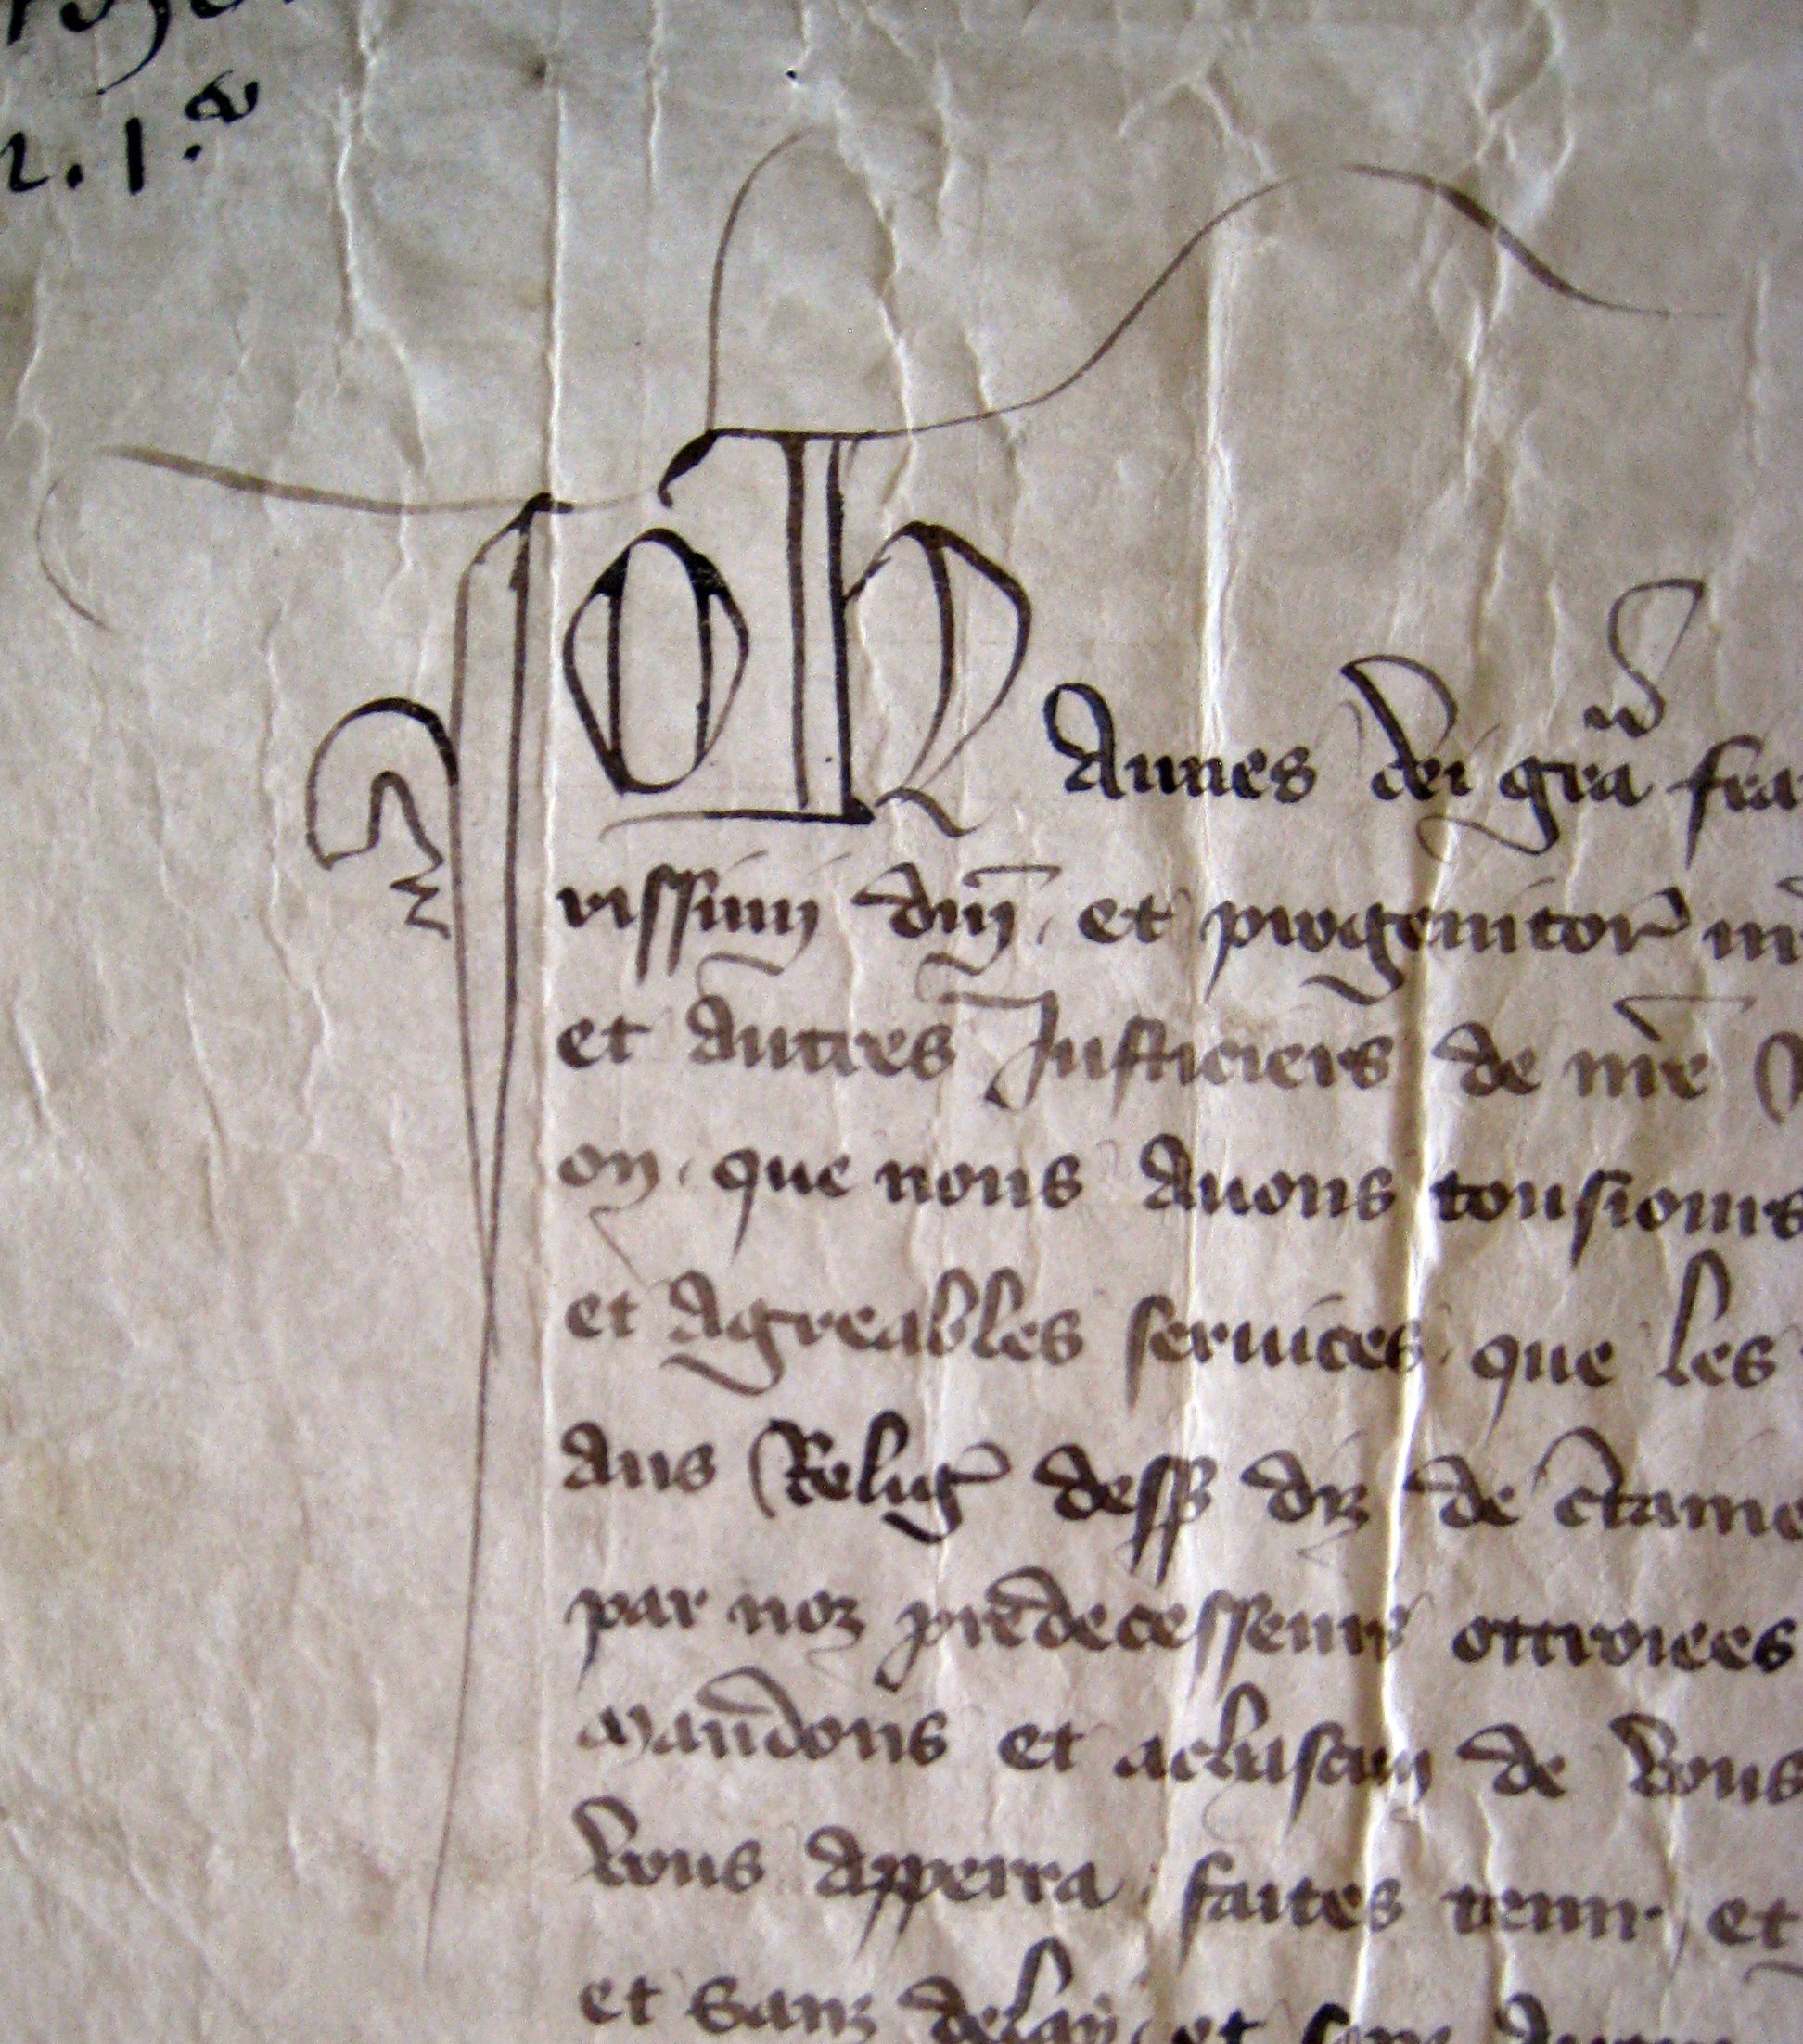 2.1.a
Johannes dei gra fra
rissimi dni et progenitor nr
et autres Justiciers de nre
on que nous auons tousiours
et agreables seruices que les
aus Relig dess diz de ctaine
par noz predecesseurs ottroiees
mandons et a chascun de vous
vous apperra faites tenir et
et sanz delay et sanz